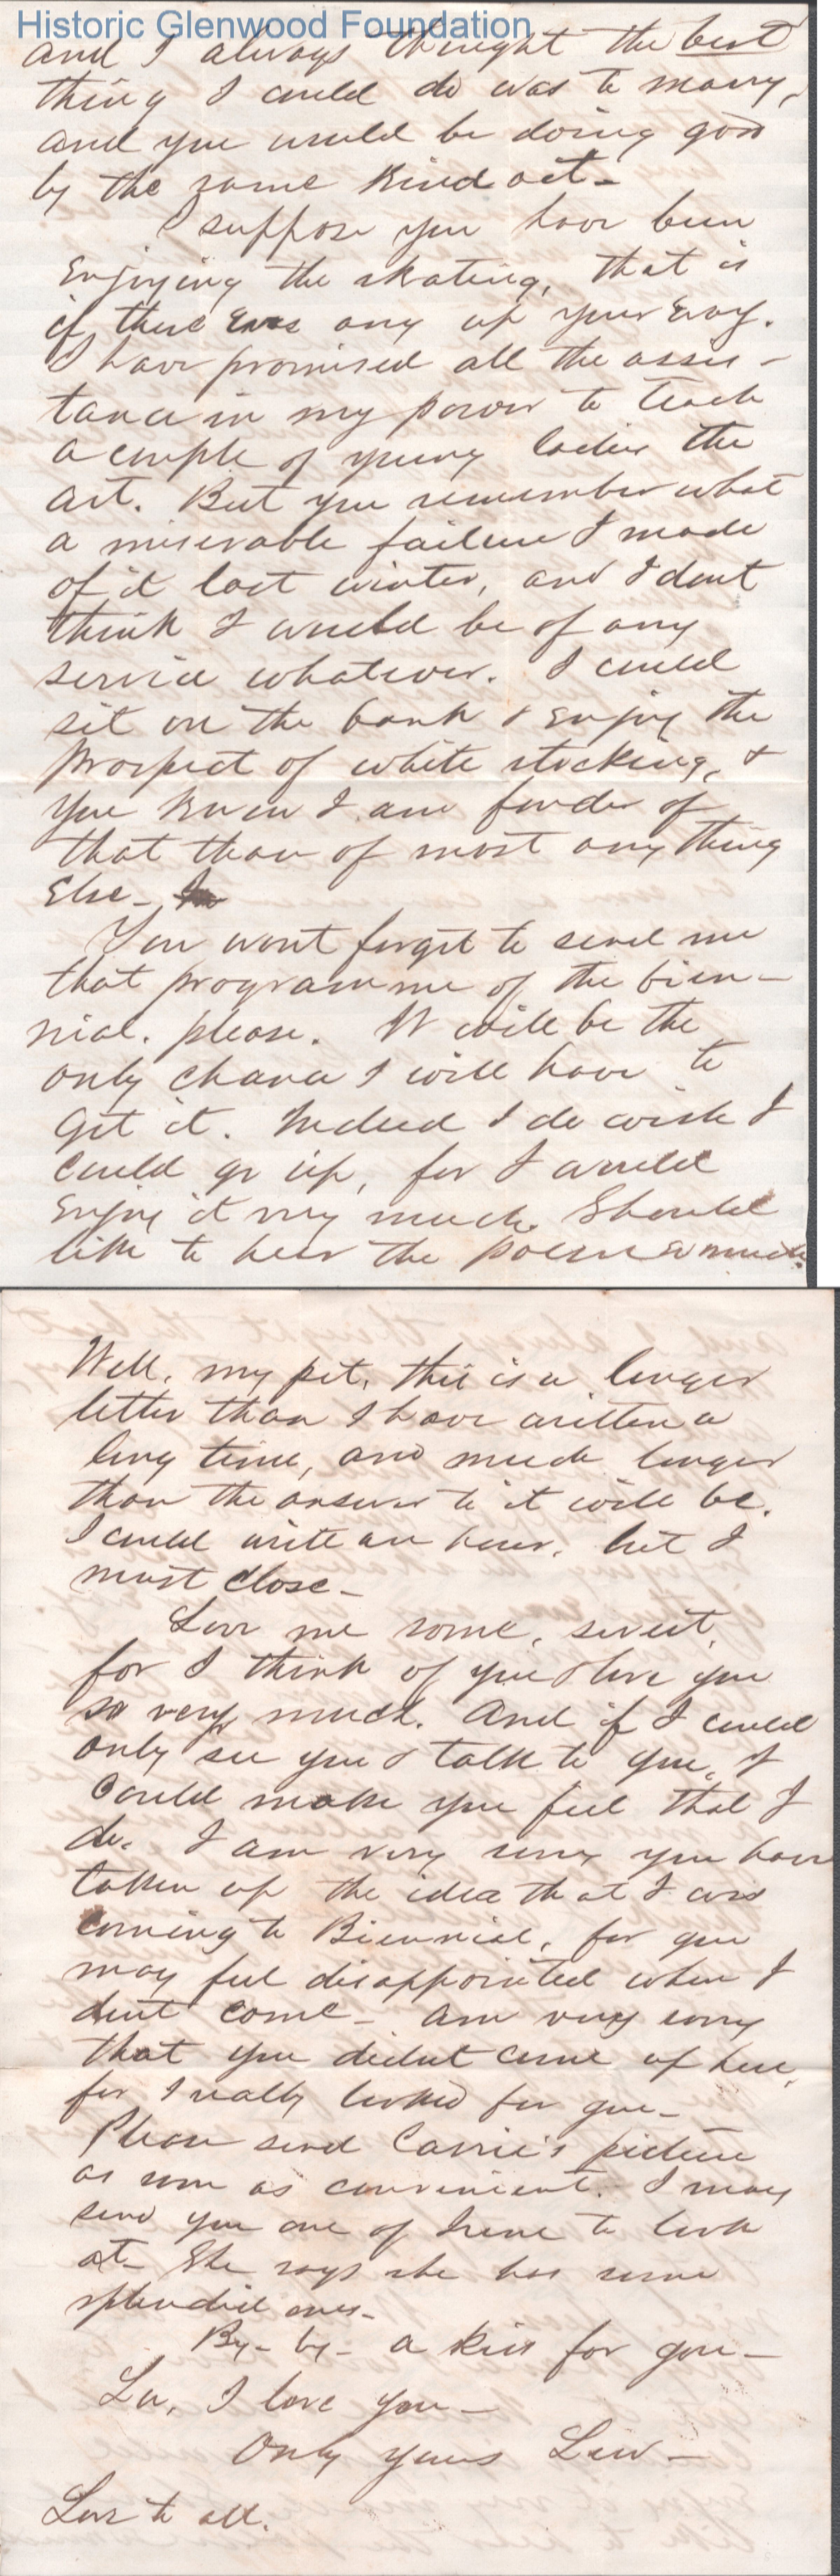 Historic Glenwood Foundation
and I always thought the best
thing I could do was to marry,
and you would be doing good
by the same kind act -
I suppose you have been
Enjoying the skating, that is
if there was any up your way.
I have promised all the assis-
tance in my power to teach
a couple of young ladies the
art. But you remember what
a miserable failure I made
of it last winter, and I dont
think I would be of any
service whatever. I could
sit on the bank & enjoy the
prospect of white stocking, &
you know I am fonder of
that than of most any thing
Else -
You wont forget to send me
that programme of the bien-
nial. please. It will be the
only chance I will have to
Get it. Indeed I do wish I
could go up, for I would
Enjoy it very much. Should
like to hear the poem so much.
Well, my pet, this is a longer
letter than I have written a
long time, and much longer
than the answer to it will be.
I could write an hour, but I
must close -
Love me some, sweet,
for I think of you & love you
so very much. And if I could
only see you & talk to you, I
could make you feel that I
do. I am very sorry you have
taken up the idea that I was
coming to Biennial, for you
may feel disappointed when I
dont come - am very sorry
that you didnt come up here,
for I really looked for you -
Please send Carrie's picture
as soon as convenient. I may
send you one of Irene to look
at - She says she has some
splendid ones -
By - by - a kiss for you -
Lu, I love you -
Only yours Lew -
Love to all.